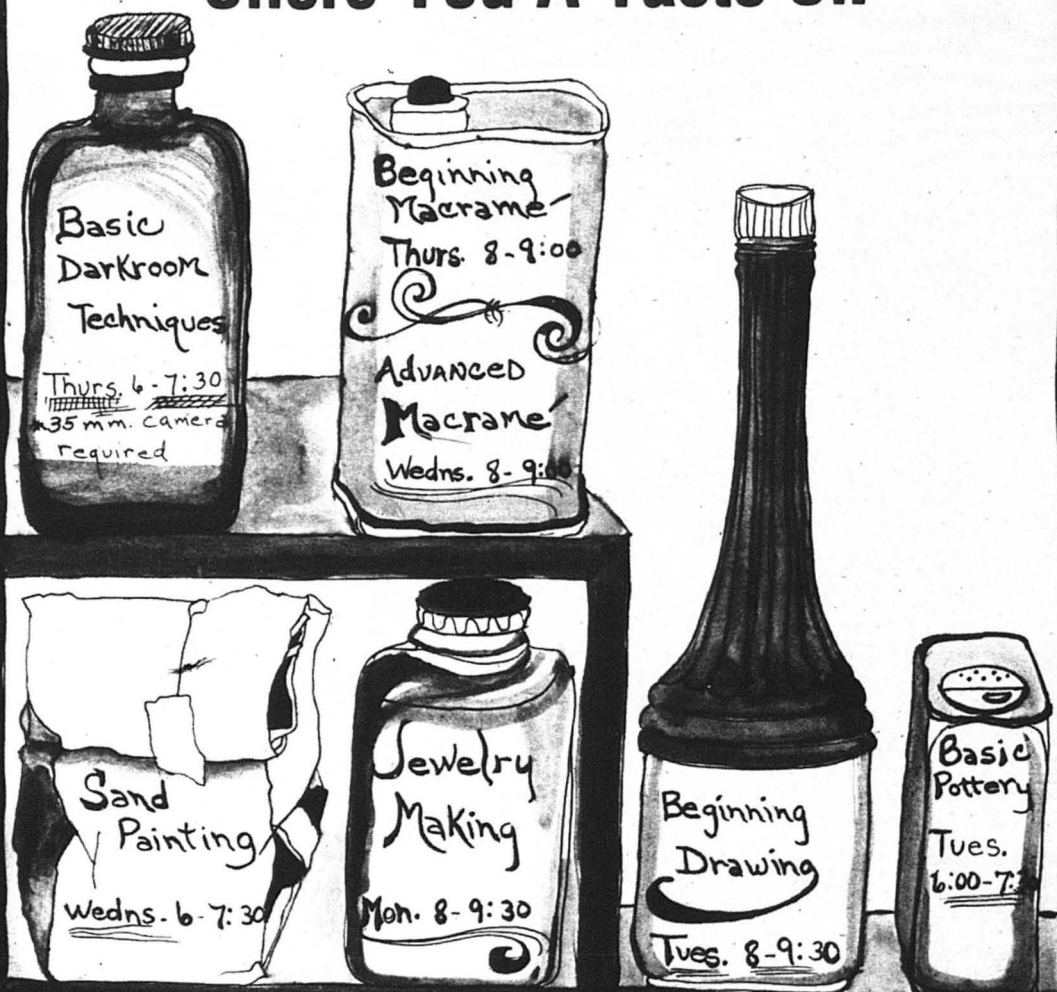 Offers You A Taste Of:
Basic
Darkroom
Techniques
Thurs. 6-7:30
*35 mm. camera
required
Beginning
Macramé
Thurs. 8-9:00
Advanced
Macramé
Wedns. 8-9:00
Sand
Painting
Wedns. 6-7:30
Jewelry
Making
Mon. 8-9:30
Beginning
Drawing
Tues. 8-9:30
Basic
Pottery
Tues.
6:00-7:30